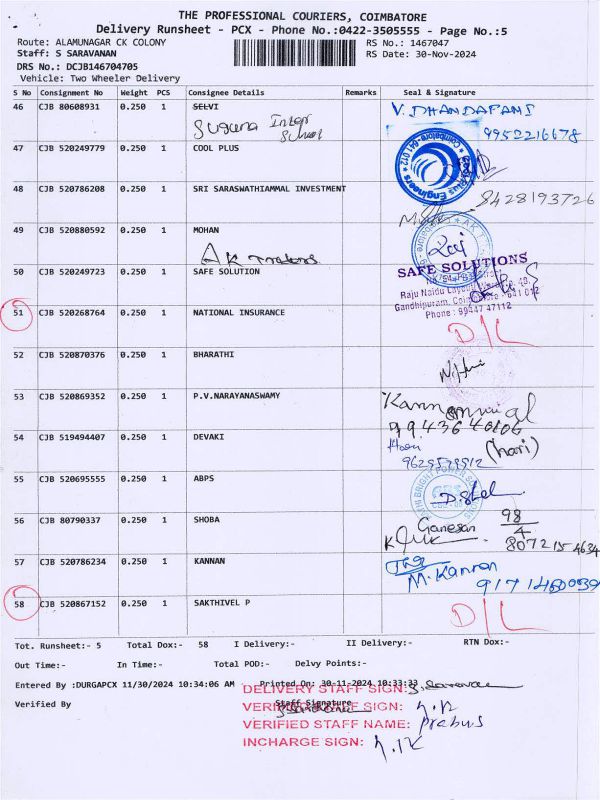 THE PROFESSIONAL COURIERS, COIMBATORE
Delivery Runsheet - PCX - Phone No.:0422-3505555 - Page No.:5
Route: ALAMUNAGAR CK COLONY RS No.: 1467047
Staff: S SARAVANAN RS Date: 30-Nov-2024
DRS No.: DCJB146704705
Vehicle: Two Wheeler Delivery
S No Consignment No Weight PCS Consignee Details Remarks Seal & Signature
46 CJB 80608931 0.250 1 SELVI V. DHANDAPANI
9952216678
47 CJB 520249779 0.250 1 COOL PLUS
48 CJB 520786208 0.250 1 SRI SARASWATHIAMMAL INVESTMENT 8428193726
49 CJB 520880592 0.250 1 MOHAN
AK Traders
50 CJB 520249723 0.250 1 SAFE SOLUTION SAFE SOLUTIONS
Gandhipuram, Coimbatore - 641 012
Phone : 99447 47112
51 CJB 520268764 0.250 1 NATIONAL INSURANCE D/L
52 CJB 520870376 0.250 1 BHARATHI
53 CJB 520869352 0.250 1 P.V.NARAYANASWAMY
9943640106
54 CJB 519494407 0.250 1 DEVAKI (hari)
55 CJB 520695555 0.250 1 ABPS
56 CJB 80790337 0.250 1 SHOBA Ganesan 98/4
8072154634
57 CJB 520786234 0.250 1 KANNAN
M. Kannan
58 CJB 520867152 0.250 1 SAKTHIVEL P D/L
Tot. Runsheet:- 5 Total Dox:- 58 I Delivery:- II Delivery:- RTN Dox:-
Out Time:- In Time:- Total POD:- Delvy Points:-
Entered By :DURGAPCX 11/30/2024 10:34:06 AM Printed On: 30-11-2024 10:33:33
DELIVERY STAFF SIGN: S. Saravanan
Verified By Staff Signature
VERIFIED STAFF SIGN:
VERIFIED STAFF NAME: Prabus
INCHARGE SIGN: